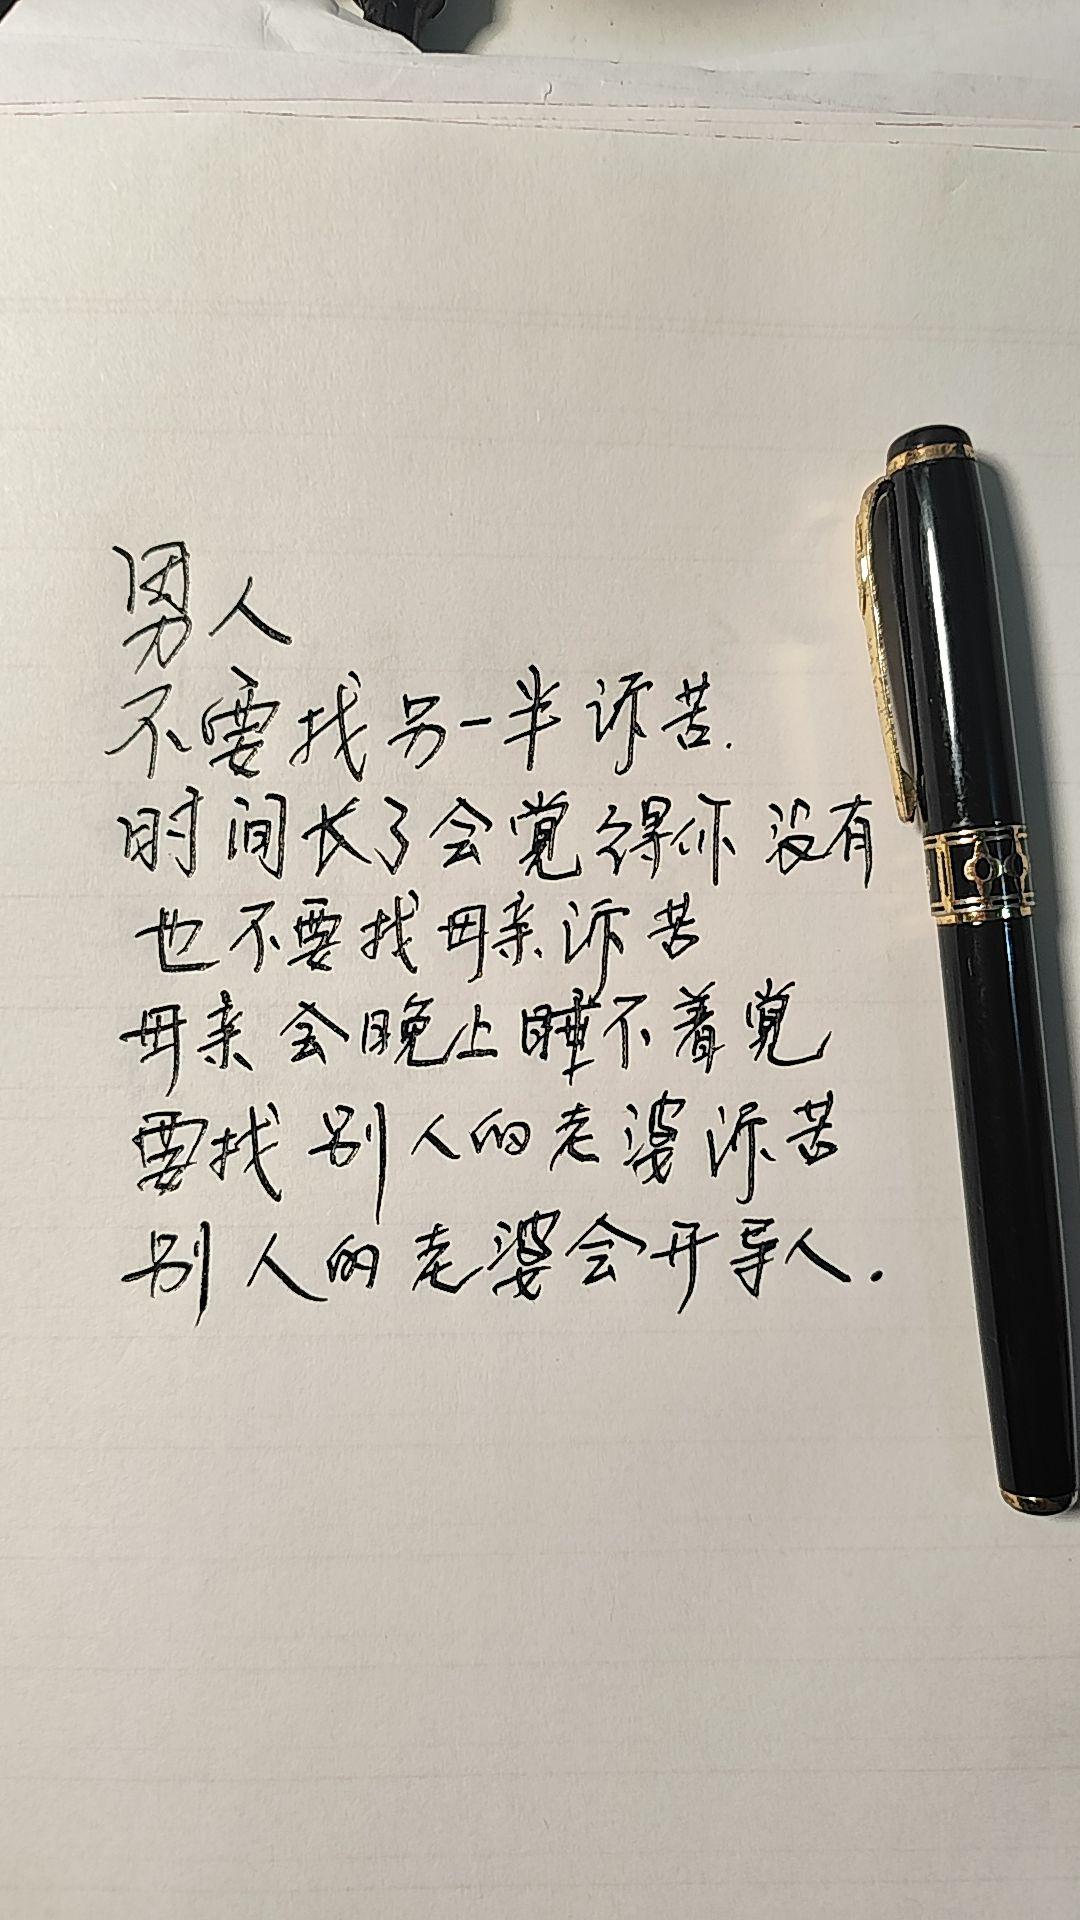 男人
不要找另一半诉苦.
时间长了会觉得你没有
也不要找母亲诉苦
母亲会晚上睡不着觉
要找别人的老婆诉苦
别人的老婆会开导人.